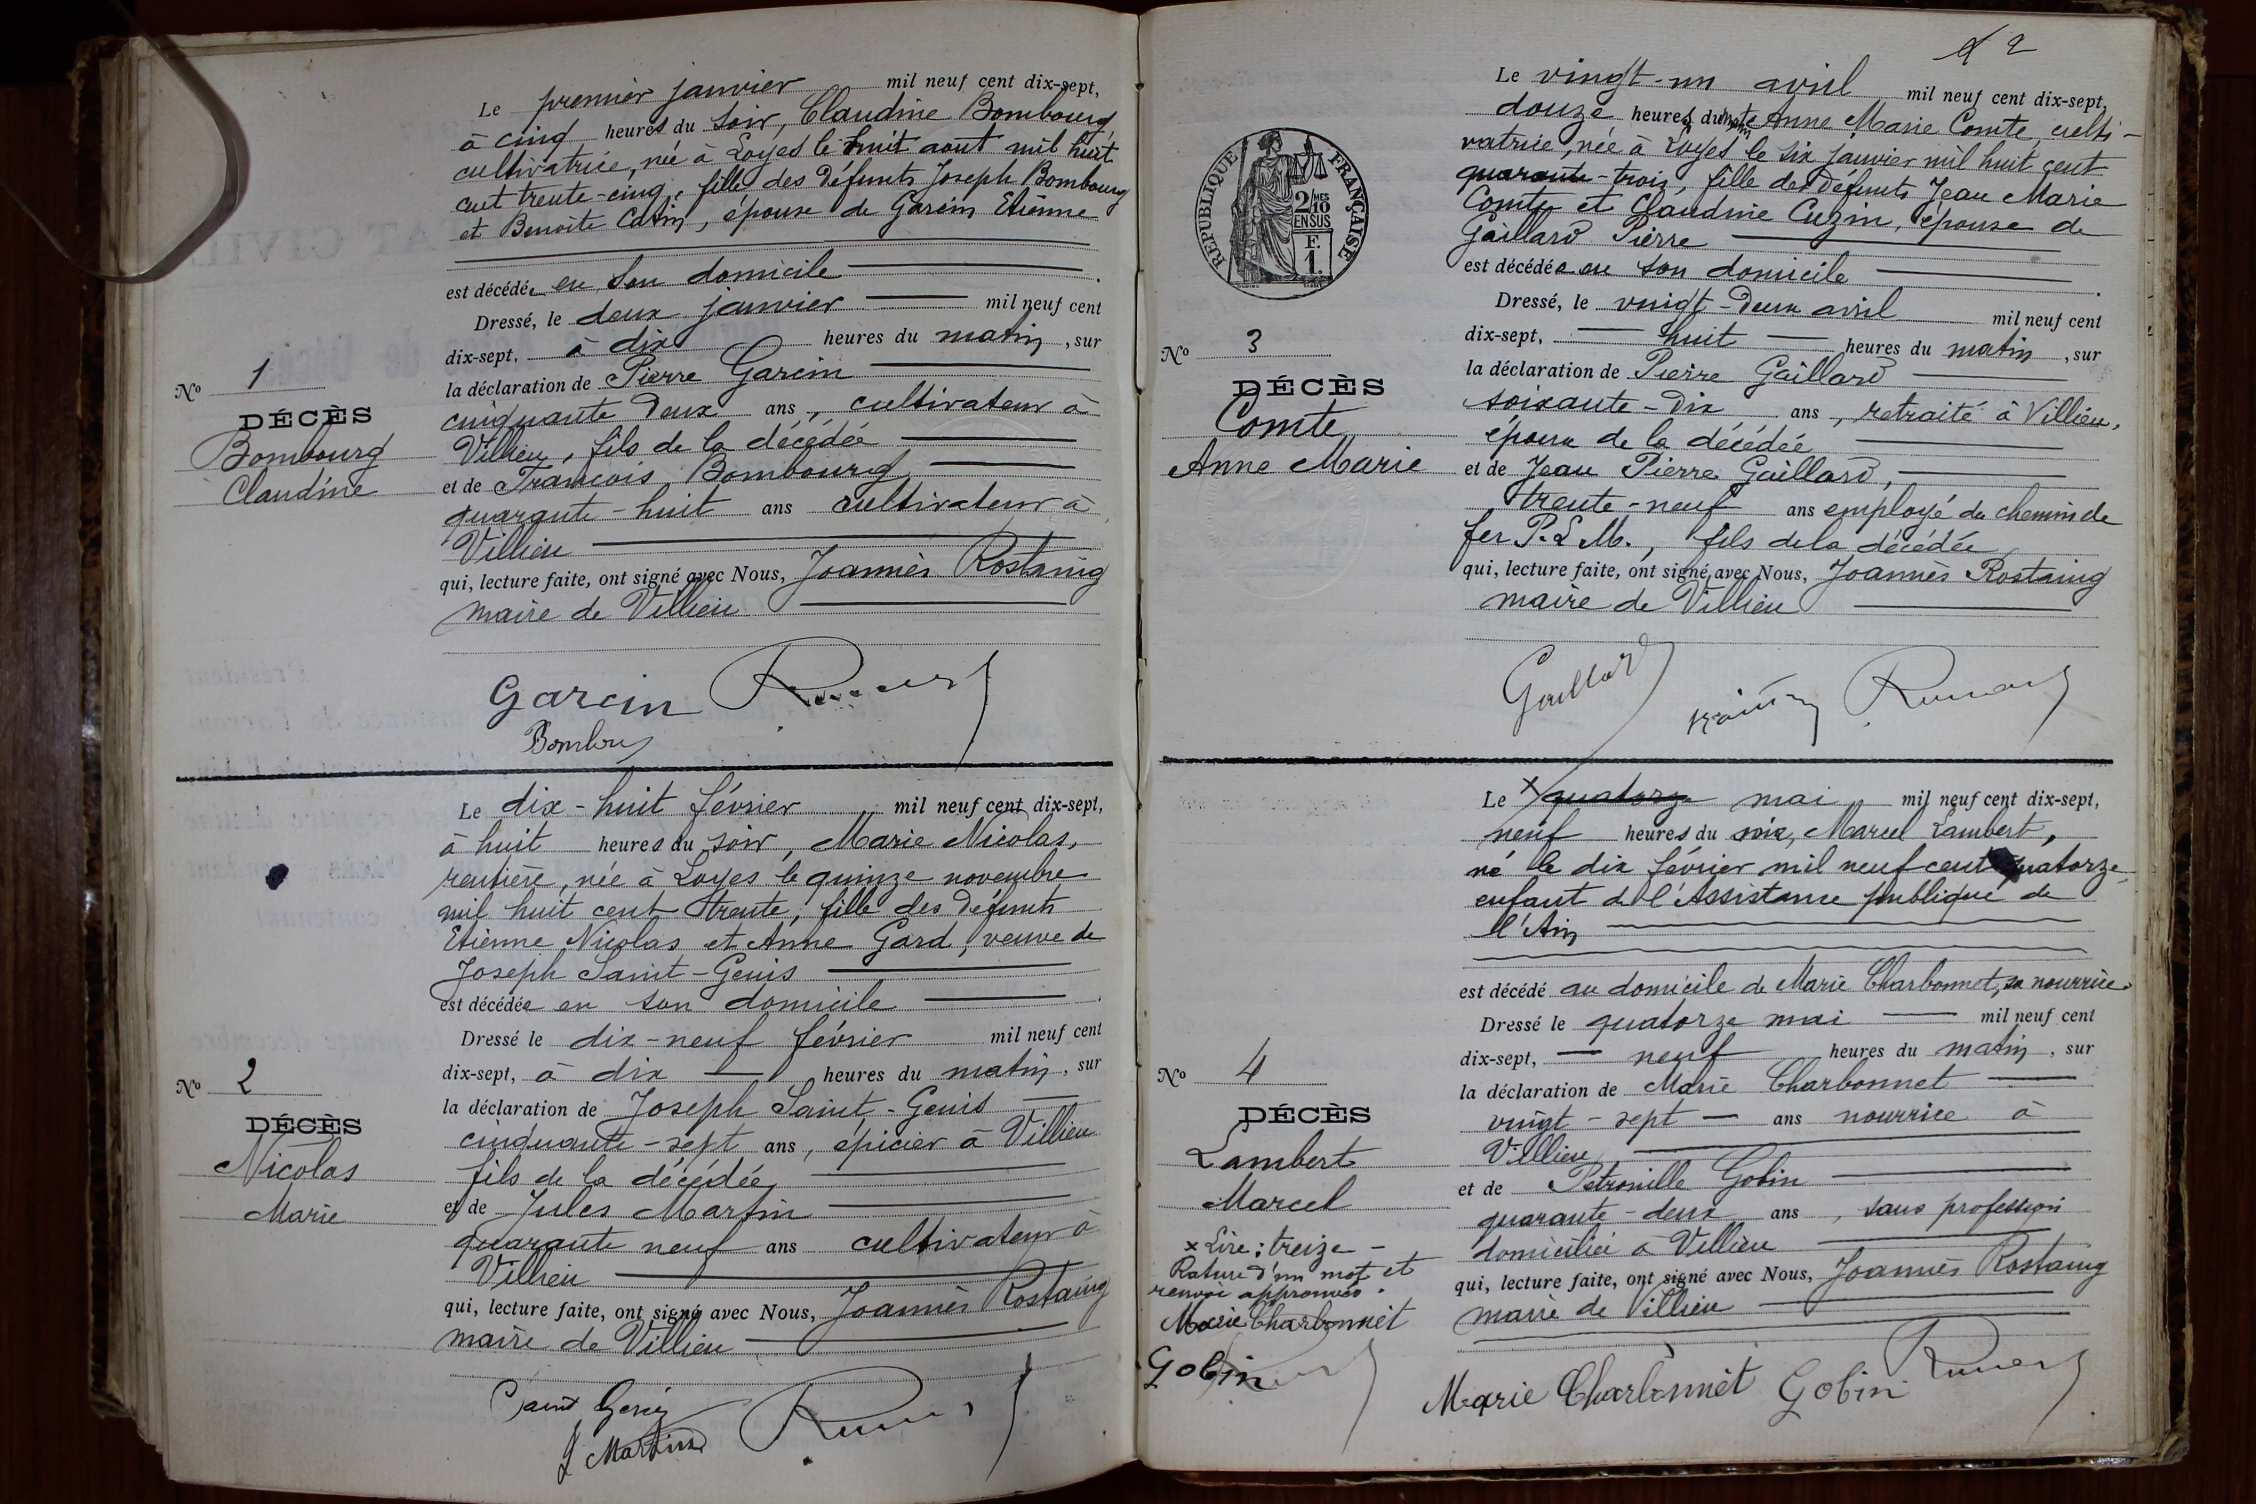 Le premier janvier mil neuf cent dix-sept,
à cinq heures du soir, Claudine Bombourg,
cultivatrice, née à Loyes le huit aout mil huit
cent trente-cinq, fille des défunts Joseph Bombourg
et Benoite Catin, épouse de Garcin Etienne
est décédée en son domicile
Dressé, le deux janvier mil neuf cent
dix-sept, à dix heures du matin, sur
la déclaration de Pierre Garcin
cinquante deux ans, cultivateur à
Villieu, fils de la décédée
et de François Bombourg
quarante-huit ans cultivateur à
Villieu
qui, lecture faite, ont signé avec Nous, Joannès Rostaing
maire de Villieu
No 1
DÉCÈS
Bombourg
Claudine
Garcin
Bombourg
Le dix-huit février mil neuf cent dix-sept,
à huit heures du soir, Marie Nicolas,
rentière, née à Loyes le quinze novembre
mil huit cent trente, fille des défunts
Etienne Nicolas et Anne Gard, veuve de
Joseph Saint-Genis
est décédée en son domicile
Dressé le dix-neuf février mil neuf cent
dix-sept, à dix heures du matin, sur
la déclaration de Joseph Saint-Genis
cinquante-sept ans, épicier à Villieu
fils de la décédée
et de Jules Martin
quarante neuf ans cultivateur à
Villieu
qui, lecture faite, ont signé avec Nous, Joannès Rostaing
maire de Villieu
No 2
DÉCÈS
Nicolas
Marie
Saint Genis
J Martin
2
RÉPUBLIQUE FRANÇAISE
2/MES
10
EN SUS
F.
1.
Le vingt-un avril mil neuf cent dix-sept,
douze heures du matin Anne Marie Comte, culti-
vatrice, née à Loyes le six janvier mil huit cent
quarante-trois, fille des défunts Jean Marie
Comte et Claudine Cuzin, épouse de
Gaillard Pierre
est décédée en son domicile
Dressé, le vingt-deux avril mil neuf cent
dix-sept, huit heures du matin, sur
la déclaration de Pierre Gaillard
soixante-dix ans, retraité à Villieu,
époux de la décédée
et de Jean Pierre Gaillard,
trente-neuf ans employé du chemin de
fer P.L.M., fils de la décédée,
qui, lecture faite, ont signé avec Nous, Joannès Rostaing
maire de Villieu
No 3
DÉCÈS
Comte
Anne Marie
Gaillard
Le x quatorze mai mil neuf cent dix-sept,
neuf heures du soir, Marcel Lambert,
né le dix février mil neuf cent quatorze
enfant de l'Assistance publique de
l'Ain
est décédé au domicile de Marie Charbonnet, sa nourrice.
Dressé le quatorze mai mil neuf cent
dix-sept, neuf heures du matin, sur
la déclaration de Marie Charbonnet
vingt-sept ans nourrice à
Villieu
et de Petronille Gobin
quarante-deux ans, sans profession
domiciliée à Villieu
qui, lecture faite, ont signé avec Nous, Joannès Rostaing
maire de Villieu
No 4
DÉCÈS
Lambert
Marcel
x Lire: treize -
Rature d'un mot et
renvoi approuvés.
Marie Charbonnet
Gobin
Marie Charbonnet Gobin